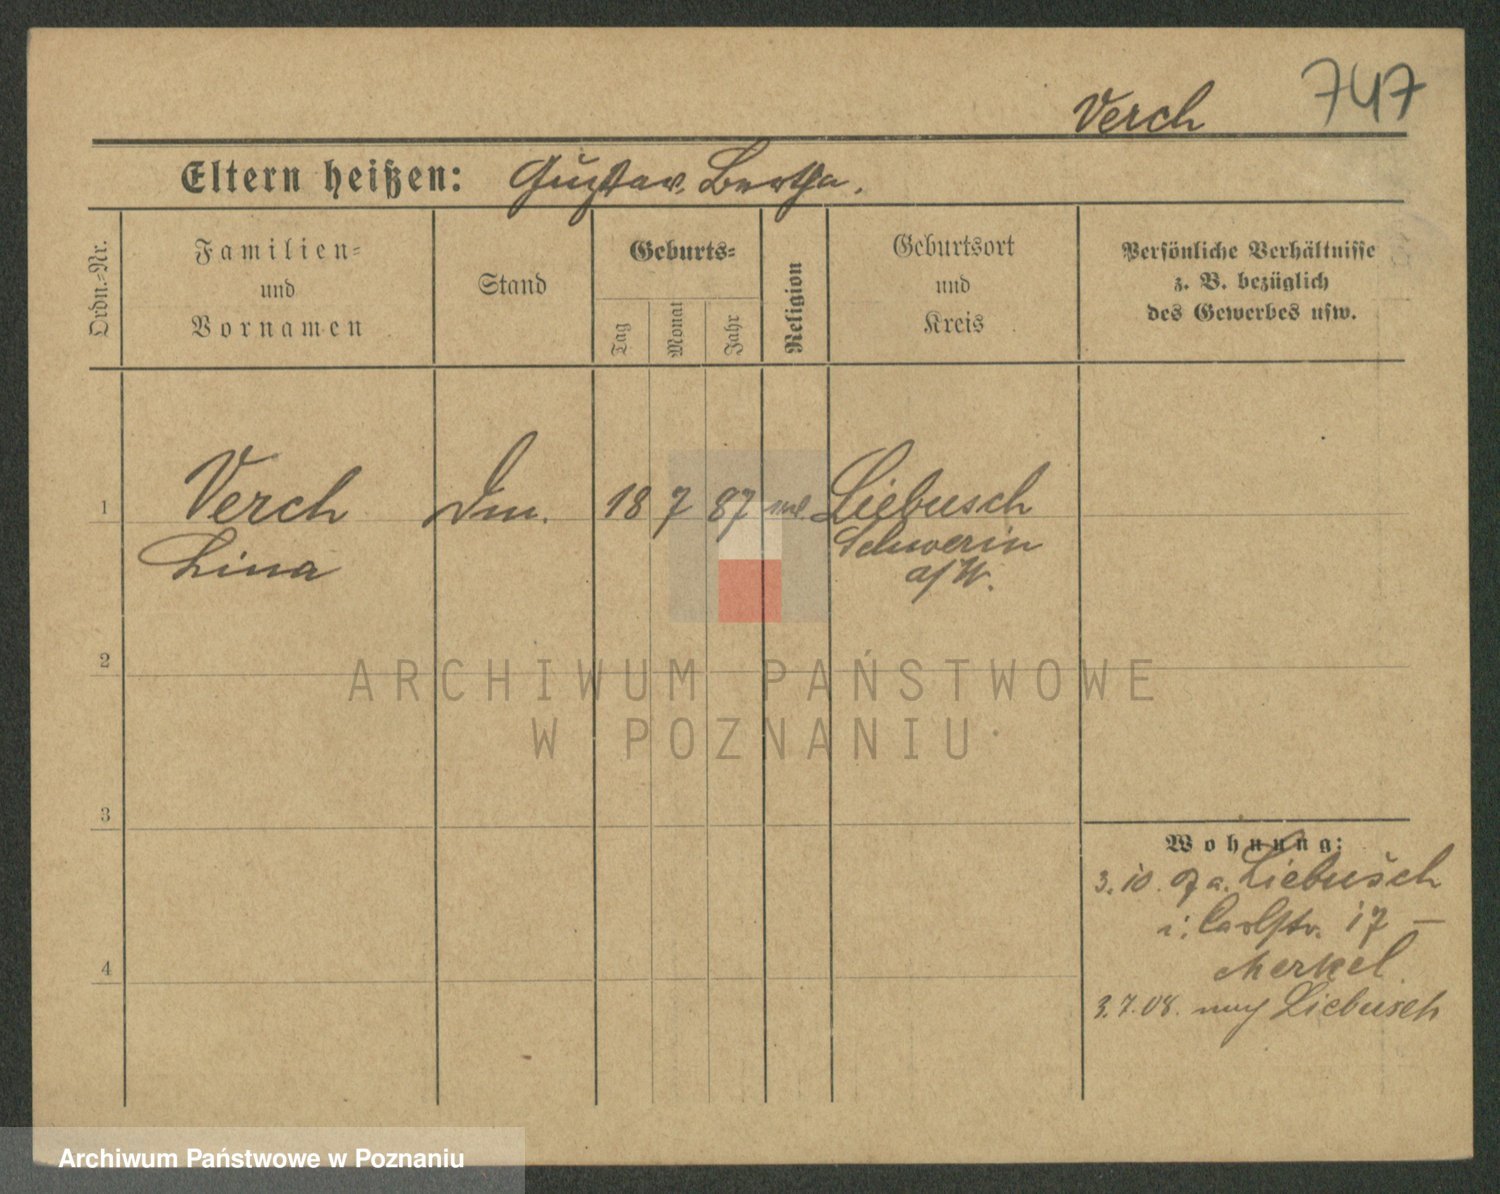 747
Verch
Eltern heißen: Gustav, Bertha.
Ordn.-Nr.
Familien-
und
Vornamen
Stand
Geburts-
Tag
Monat
Jahr
Religion
Geburtsort
und
Kreis
Persönliche Verhältnisse
z. B. bezüglich
des Gewerbes usw.
1 Verch 18 7 87 Liebusch
Lina Schwerin
a/W.
2
ARCHIWUM PAŃSTWOWE
W POZNANIU
3
Wohnung:
3. 10. Liebusch
i. Carlstr. 17 —
4
Merkel
3.7.08. Liebusch
Archiwum Państwowe w Poznaniu